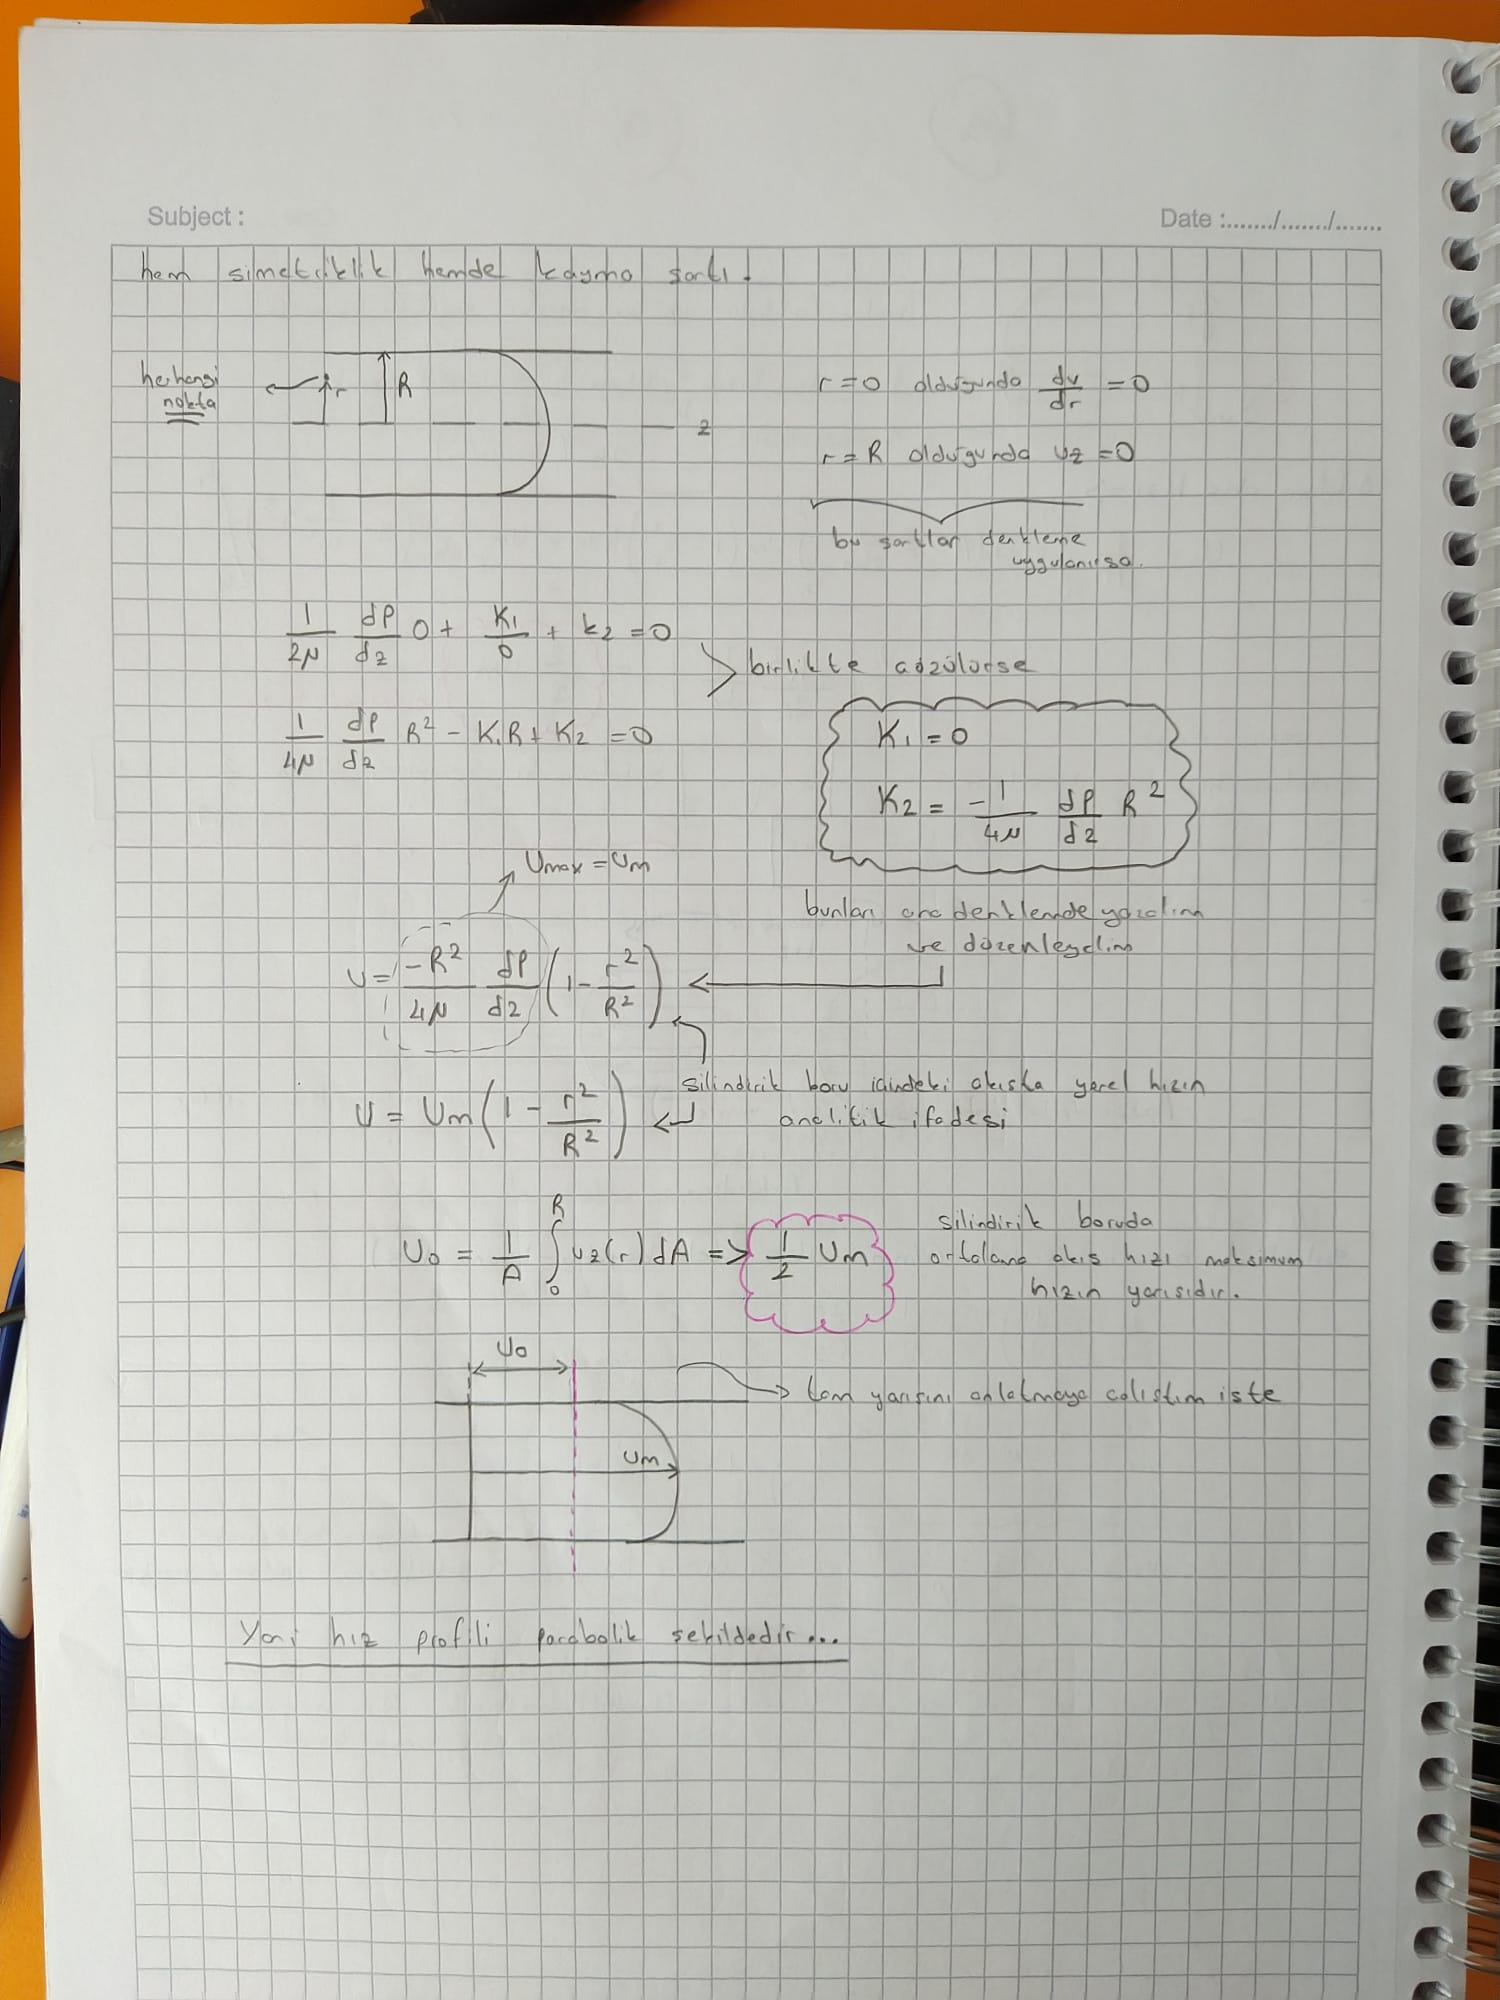 Subject :
Date :......./......./.......
hem simetriklik hemde kayma şartı.
herhangi
nokta
r
R
z
r=0 olduğunda dv/dr = 0
r=R olduğunda vz =0
bu şartlar denkleme
uygulanırsa.
1/2μ dP/dz 0 + K1/0 + k2 =0
birlikte çözülürse
1/4μ dP/dz R² - K1R + K2 =0
K1 =0
K2 = -1/4μ dP/dz R²
Umax = Um
bunları ana denklemde yazalım
ve düzenleyelim
U = -R²/4μ dP/dz (1 - r²/R²)
silindirik boru içindeki akışta yerel hızın
analitik ifadesi
U = Um (1 - r²/R²)
U0 = 1/A ∫0R vz(r) dA => 1/2 Um
silindirik boruda
ortalama akış hızı maksimum
hızın yarısıdır.
U0
tam yarısını anlatmaya çalıştım işte
Um
Yani hız profili parabolik şekildedir...